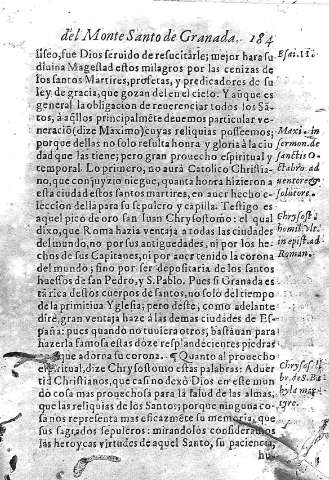 del Monte Santo de Granada. 184
liseo, fue Dios seruido de resucitarle; mejor hara su
diuina Magestad estos milagros por las cenizas de
los santos Martires, profetas, y predicadores de su
ley de gracia, que gozan del en el cielo. Y aũque es
general la obligacion de reuerenciar todos los Sã-
tos, à aq̃llos principalmẽte deuemos particular ve-
neraciõ (dize Maximo) cuyas reliquias posseemos;
porque dellas no solo resulta honra y gloria à la ciu
dad que las tiene; pero gran prouecho espiritual y
temporal. Lo primero, no aurà Catolico Christia-
no, que con juyzio niegue, quanta honra hizieron a
esta ciudad estos santos martires, en auer hecho e-
leccion della para su sepulcro y capilla. Testigo es
aquel pico de oro san Iuan Chrysostomo: el qual
dixo, que Roma hazia ventaja a todas las ciudades
del mundo, no por sus antiguedades, ni por los he-
chos de sus Capitanes, ni por auer tenido la corona
del mundo; sino por ser depositaria de los santos
huessos de san Pedro, y S. Pablo. Pues si Granada es
tã rica destos cuerpos de santos, no solo del tiempo
de la primitiua Yglesia; pero deste, como adelante
dirè gran ventaja haze à las demas ciudades de Es-
paña: pues quando no tuuiera otros, bastauan para
hazerla famosa estas doze resplandecientes piedras
que adorna su corona. ¶ Quanto al prouecho
espiritual, dize Chrysostomo estas palabras: Aduer
tid Christianos, que casi no dexò Dios en este mun
do cosa mas prouechosa para la salud de las almas,
que las reliquias de los Santos; porque ninguna co-
sa nos representa mas eficazmẽte su memoria, que
sus sagrados sepulcros: mirandolos consideramos
las heroycas virtudes de aquel Santo, su paciencia,
hu-
Esai. 11.
Maxi. in
sermon. de
sanctis O-
Chrysost.
homil.
in epist. ad
Roman.
Chrysos. li
br. de S. Ba
byla mar-
tyre.